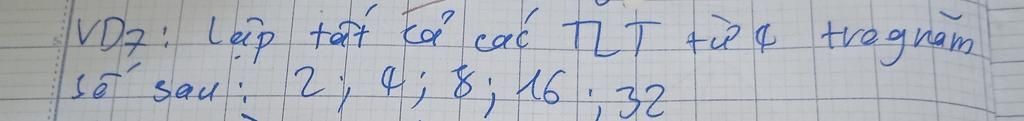 VD7: Lập tất cả các TLT từ 4 trog năm
số sau: 2; 4; 8; 16; 32